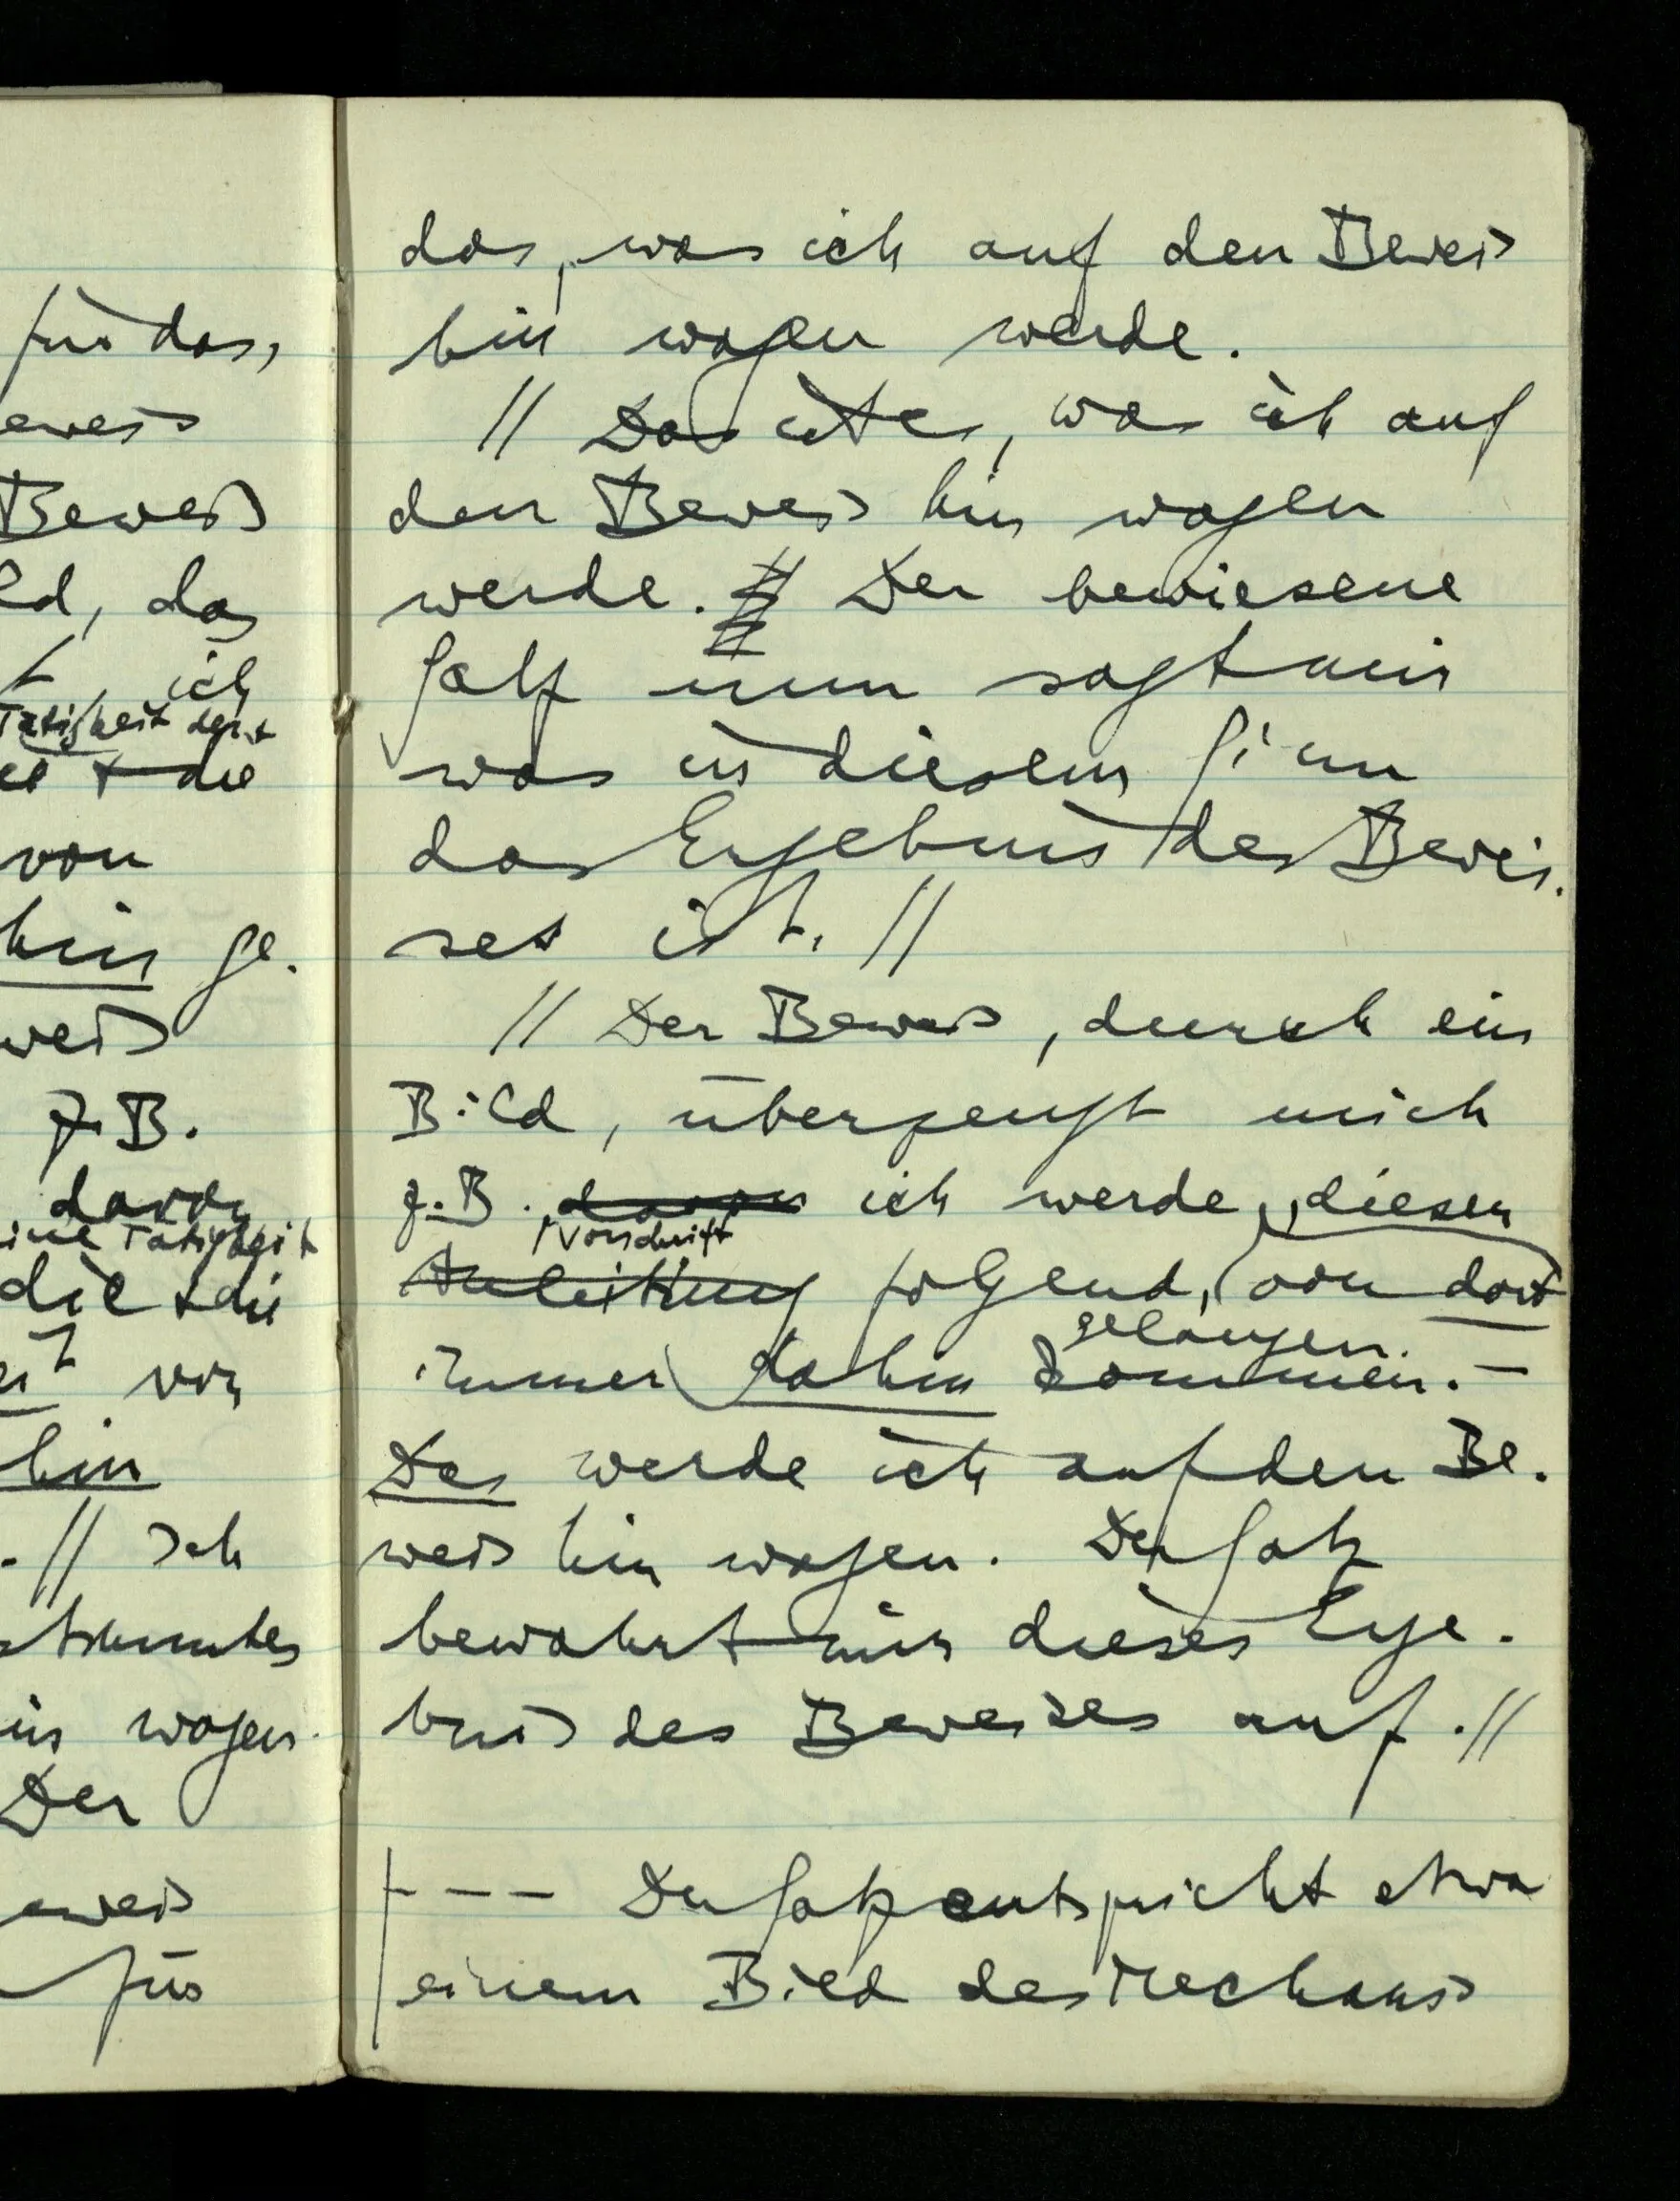 für das,
eweis
Beweis
ld, das
t, ich
Tätigkeit der
die
von
hin ge-
weis
z.B.
davon
ine Tätigkeit
die + die
von
hin
. // Ich
stimmtes
in wagen
Der
eweis
für
das, was ich auf den Beweis
hin wagen werde.
// Das ist es, was ich auf
den Beweis hin wagen
werde. // Der bewiesene
Satz nun sagt mir
was in diesem Sinn
das Ergebnis des Bewei-
ses ist. //
// Der Beweis, durch ein
Bild, überzeugt mich
z.B. davon ich werde, diesen
Vorschrift
Anleitung folgend, (von dort
gelangen.
immer) dahin kommen. –
Das werde ich auf den Be-
weis hin wagen. Der Satz
bewahrt mir dieses Erge-
bnis des Beweises auf. //
--- Der Satz entspricht etwa
einem Bild des Mechanis